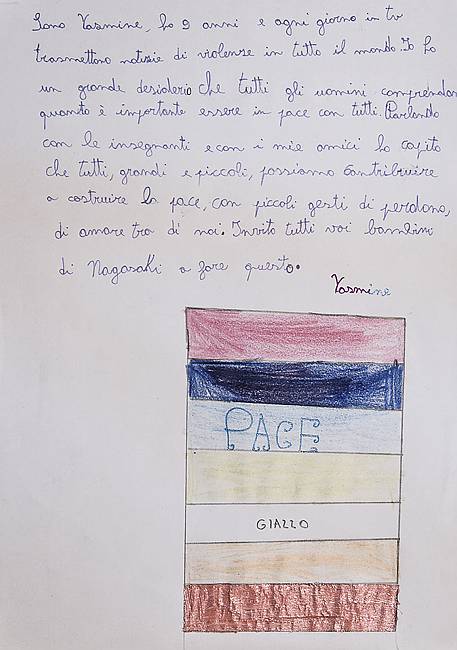 Sono Yasmine, ho 9 anni e ogni giorno in tv
trasmettono notizie di violenze in tutto il mondo. Io ho
un grande desiderio che tutti gli uomini comprendano
quanto è importante essere in pace con tutti. Parlando
con le insegnanti e con i miei amici ho capito
che tutti, grandi e piccoli, possiamo contribuire
a costruire la pace, con piccoli gesti di perdono,
di amore tra di noi. Invito tutti voi bambini
di Nagasaki a fare questo.
Yasmine
PACE
GIALLO